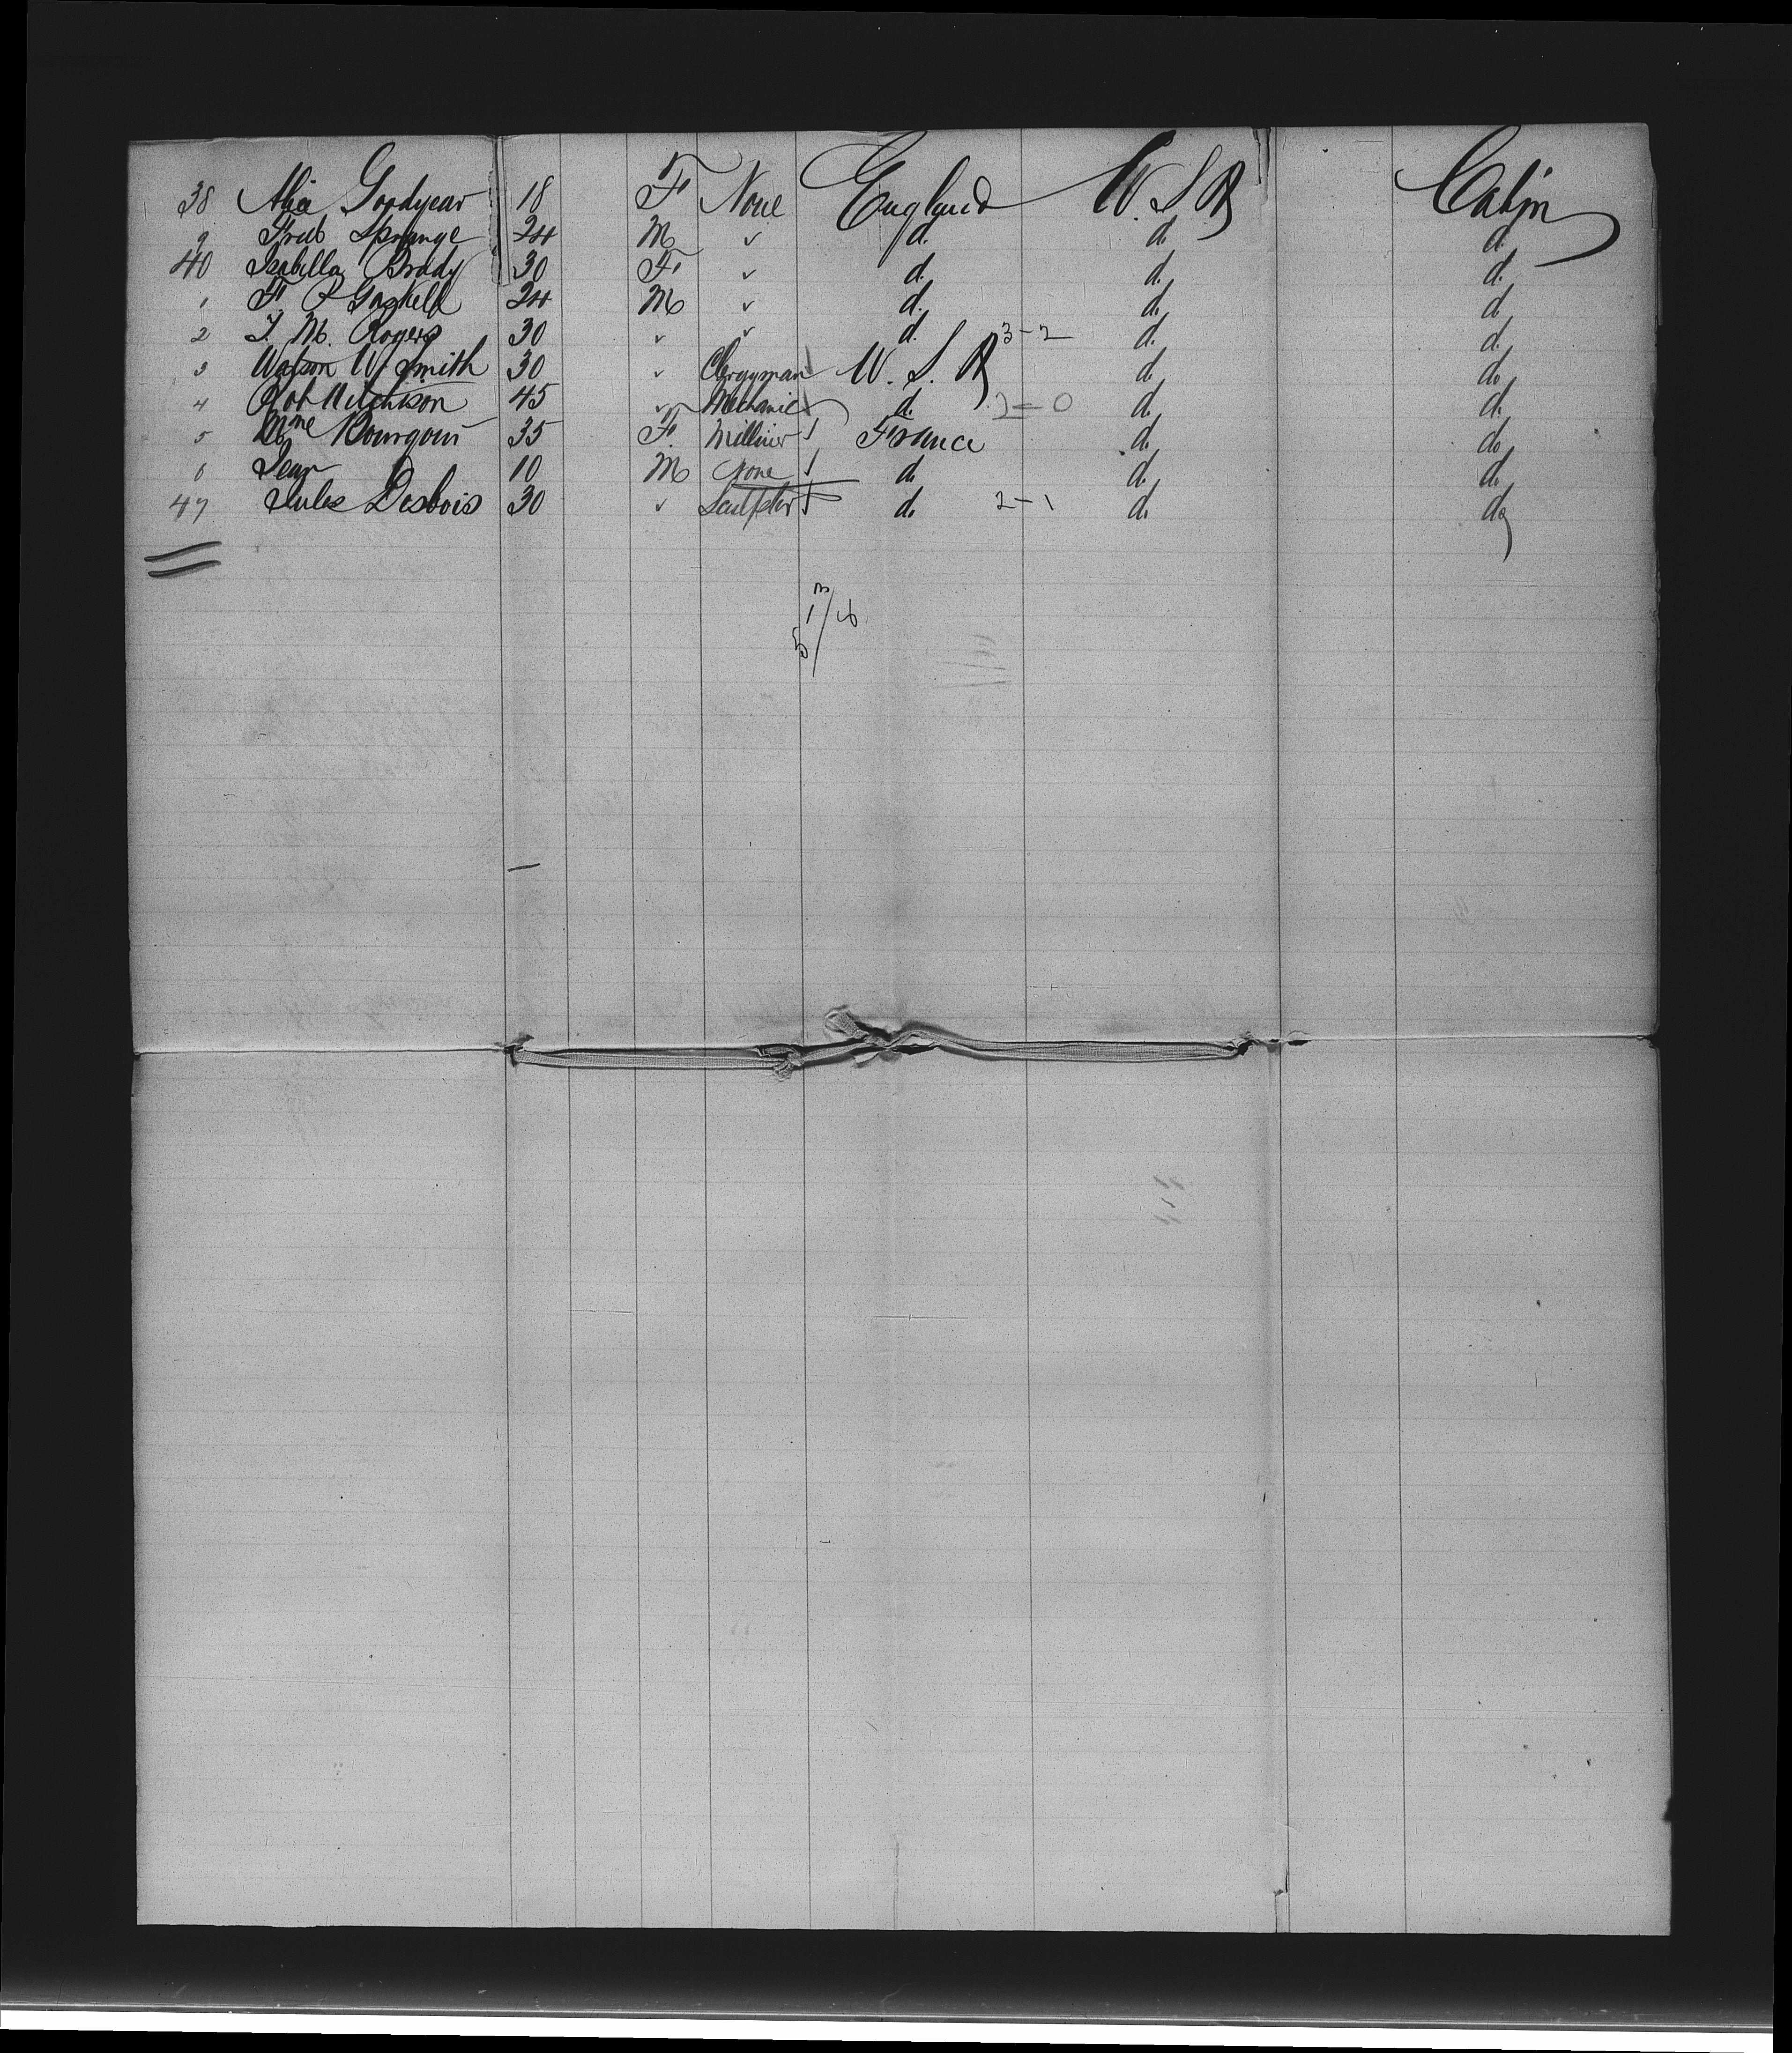 38 Alice Goodyear 18 F None England U.S.A Cabin
9 Fred Sprange 24 M " d. d. d.
40 Isabella Brady 30 F " d. d. d.
1 F. P Gaskell 24 M " d. d. d
2 T. M. Rogers 30 " " d. 3-2 d. d.
3 Watson W. Smith 30 " Clergyman U.S.A d. do
4 Rob Hitchison 45 " Mechanic d. 2=0 d. d.
5 Mme Bourgoin 35 F. Milliner France d. do
6 Jean 10 M None d. d. d.
47 Jules Desbois 30 " Sculptor d. 2-1 d. do